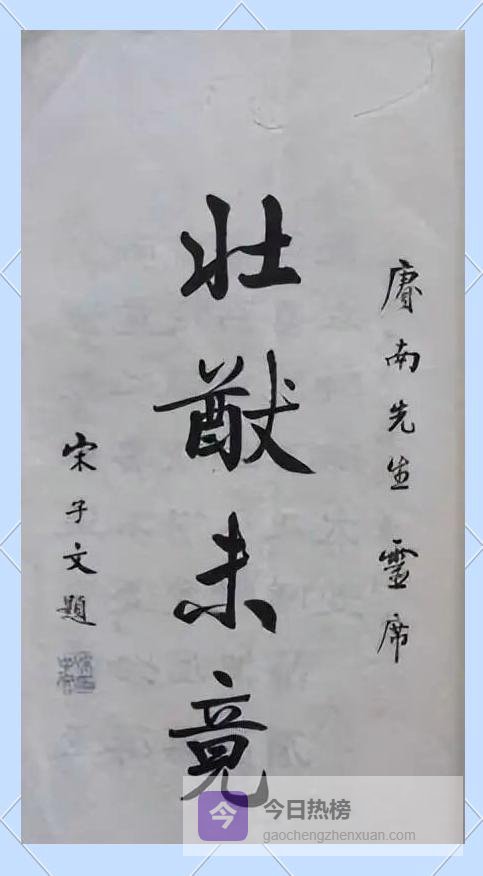 賡南先生靈席
壯猷未竟
宋子文題
今
今日热榜
gaochengzhenxuan.com